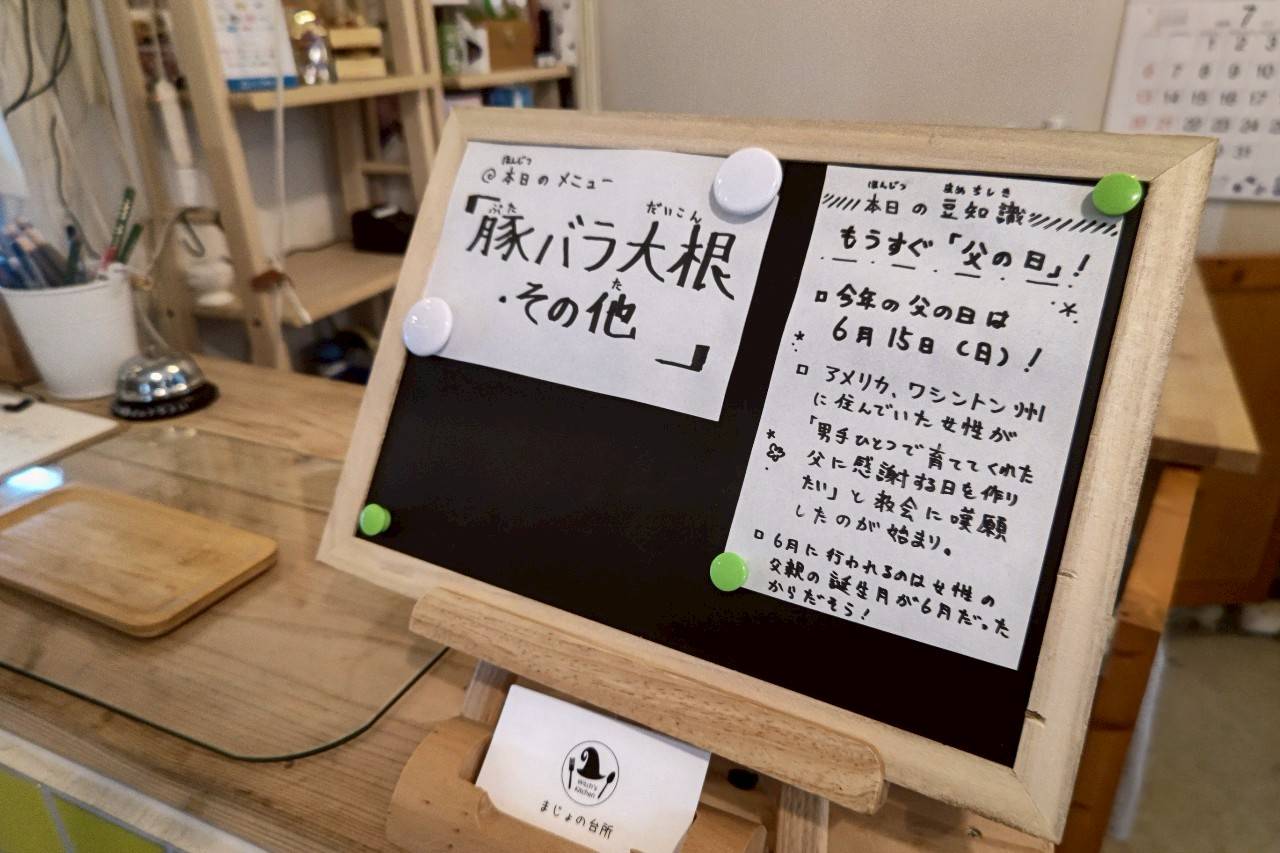 ほんじつ
@本日のメニュー
ぶた だいこん
「豚バラ大根
た
・その他
」
ほんじつ まめちしき
本日の豆知識
もうすぐ「父の日」!
今年の父の日は
6月15日(日)!
アメリカ、ワシントン州
に住んでいた女性が
「男手ひとつで育ててくれた
父に感謝する日を作り
たい」と教会に嘆願
したのが始まり。
6月に行われるのは女性の
父親の誕生月が6月だった
からだそう!
witch's
kitchen
まじょの台所
7
1 2 3
6 7 8 9 10
13 14 15 16 17
21 22 23 24
31